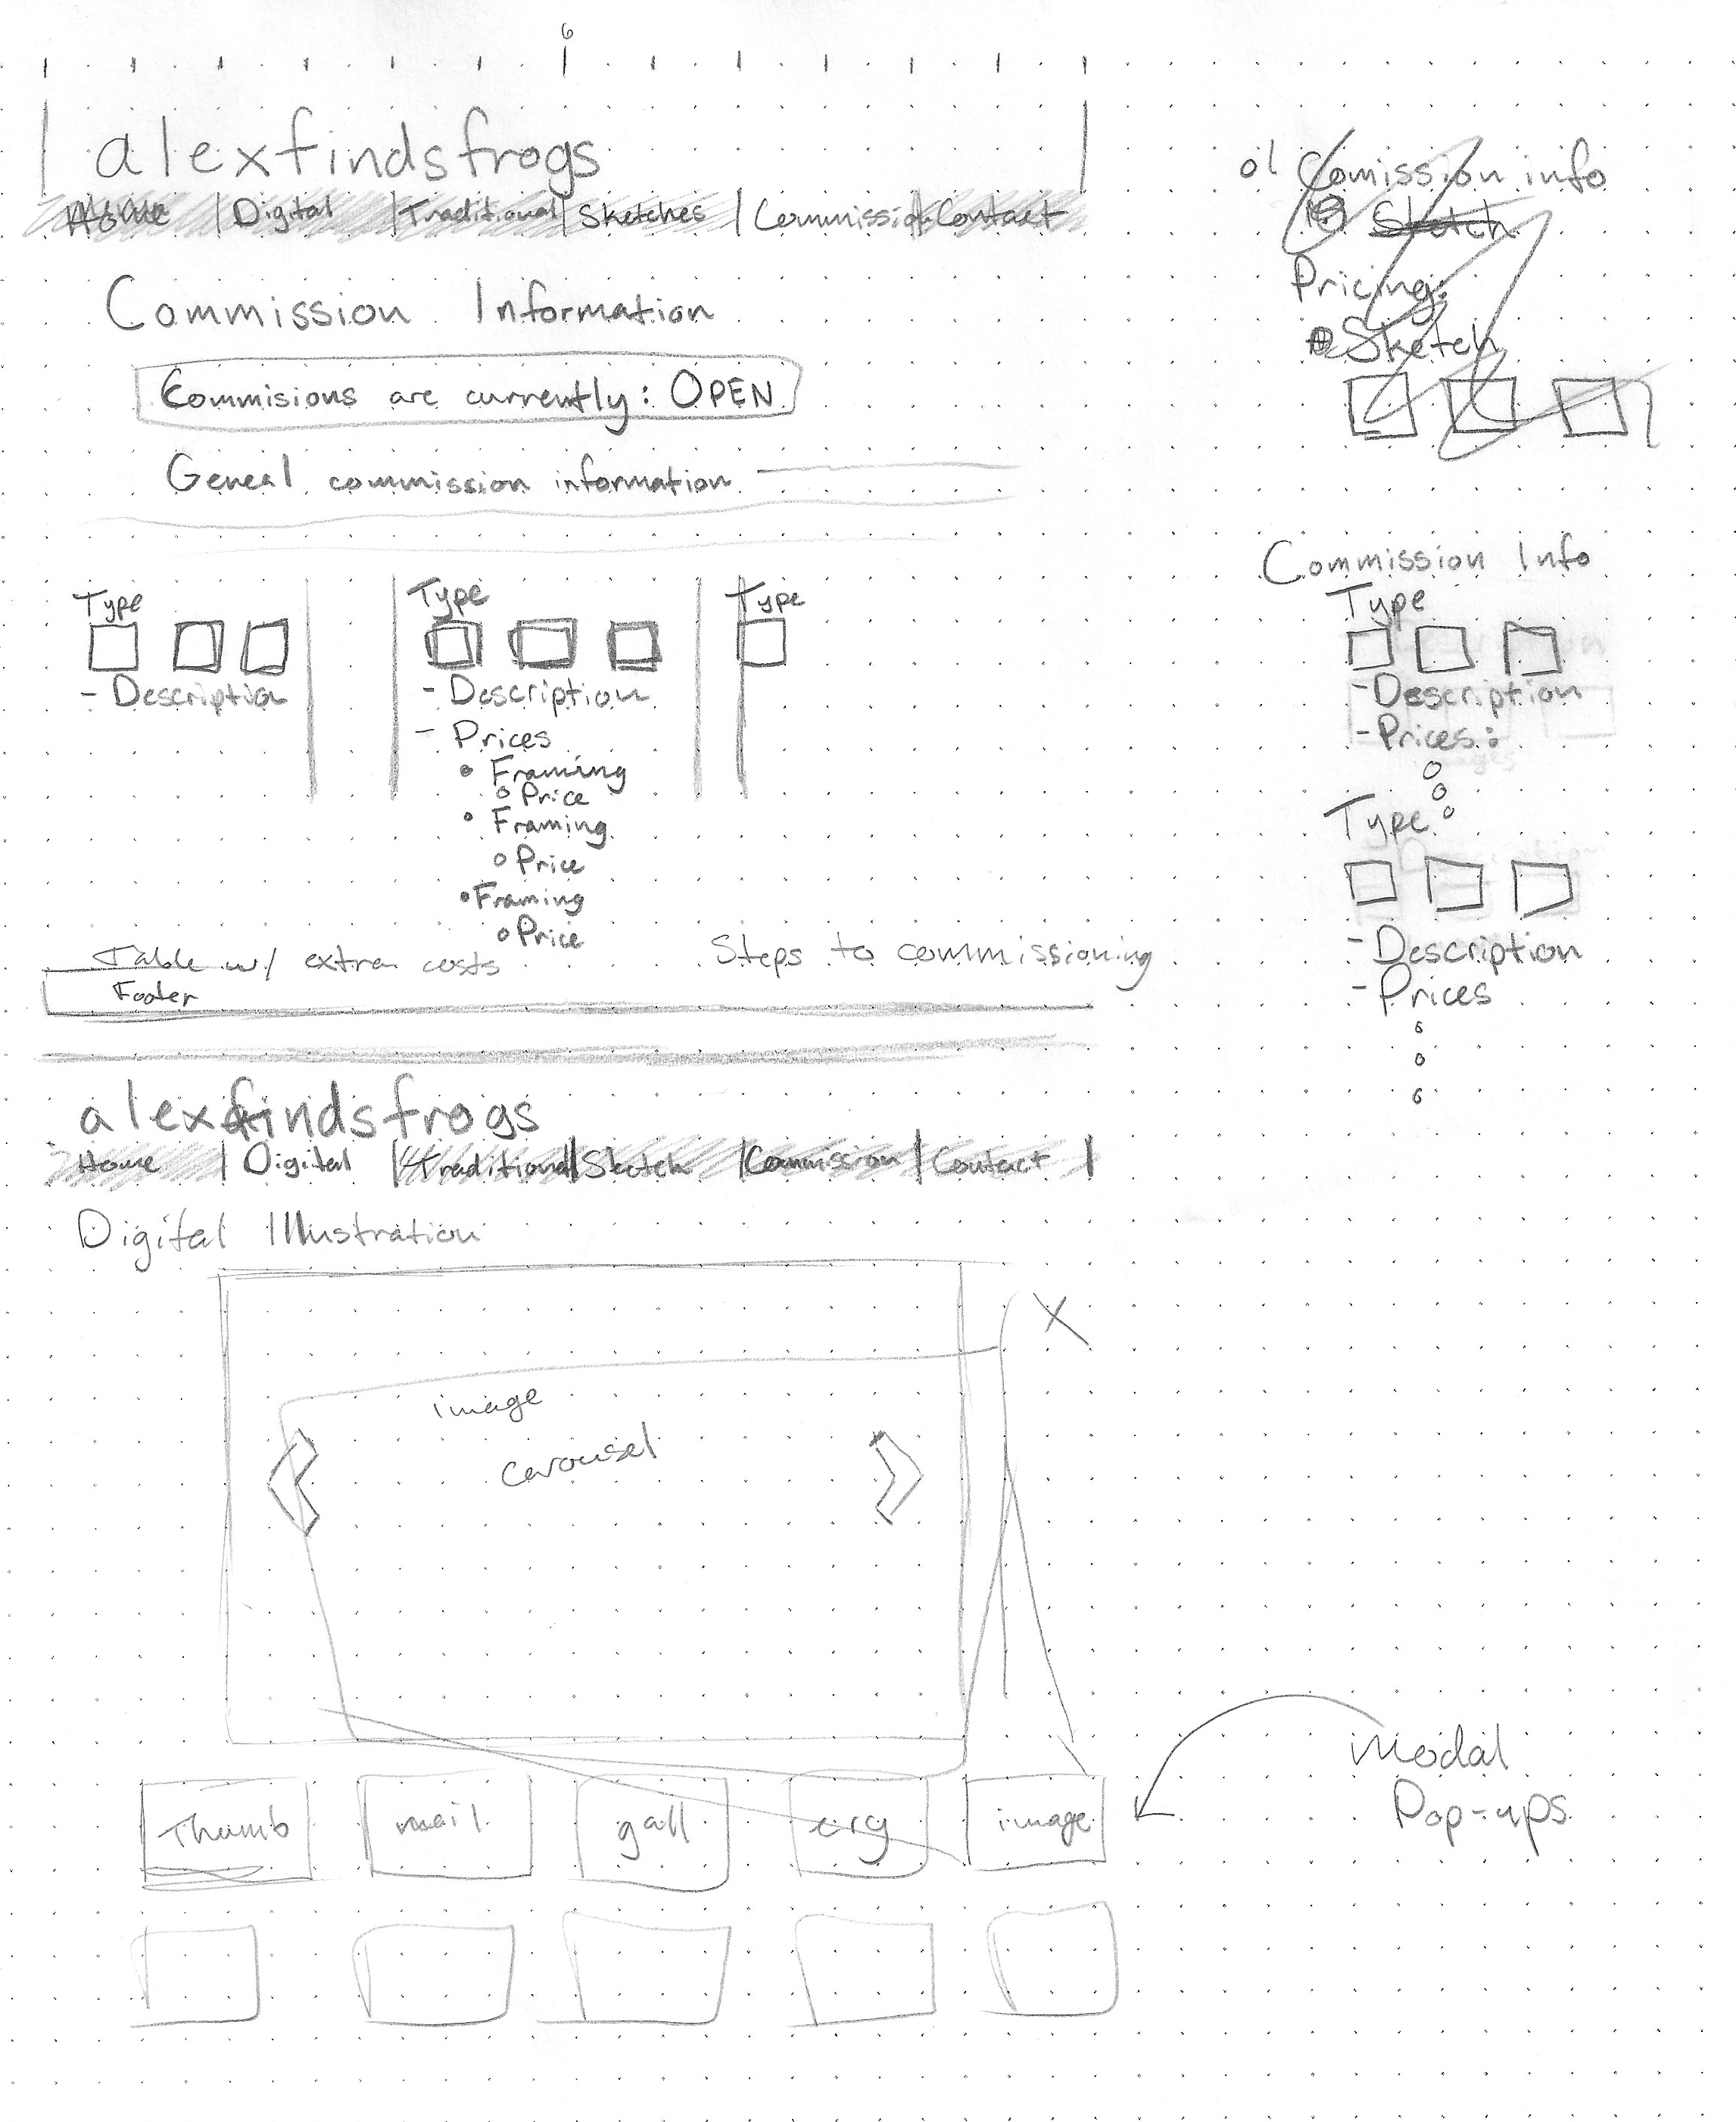 6
alexfindsfrogs
Home | Digital | Traditional | Sketches | Commission Contact
Commission Information
Commisions are currently: OPEN
Geneal commission information
Type
- Description
Type
- Description
- Prices
• Framing
○ Price
• Framing
○ Price
• Framing
○ Price
Type
Table w/ extra costs
Steps to commissioning
Footer
Comission info
Sketch
Pricing:
Sketch
Commission Info
Type
- Description
- Prices:
Type
- Description
- Prices
alexfindsfrogs
Home | Digital | Traditional | Sketch | Commission | Contact |
Digital Illustration
X
image
carousel
Thumb nail gall ery image
Modal
Pop-ups